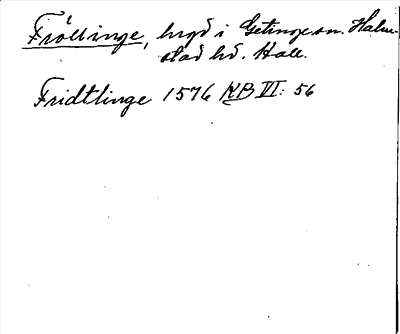 Fröllinge, bygd i Getinge sn. Halm-
stad hd. Hall.
Fridtlinge 1576 KB VI: 56